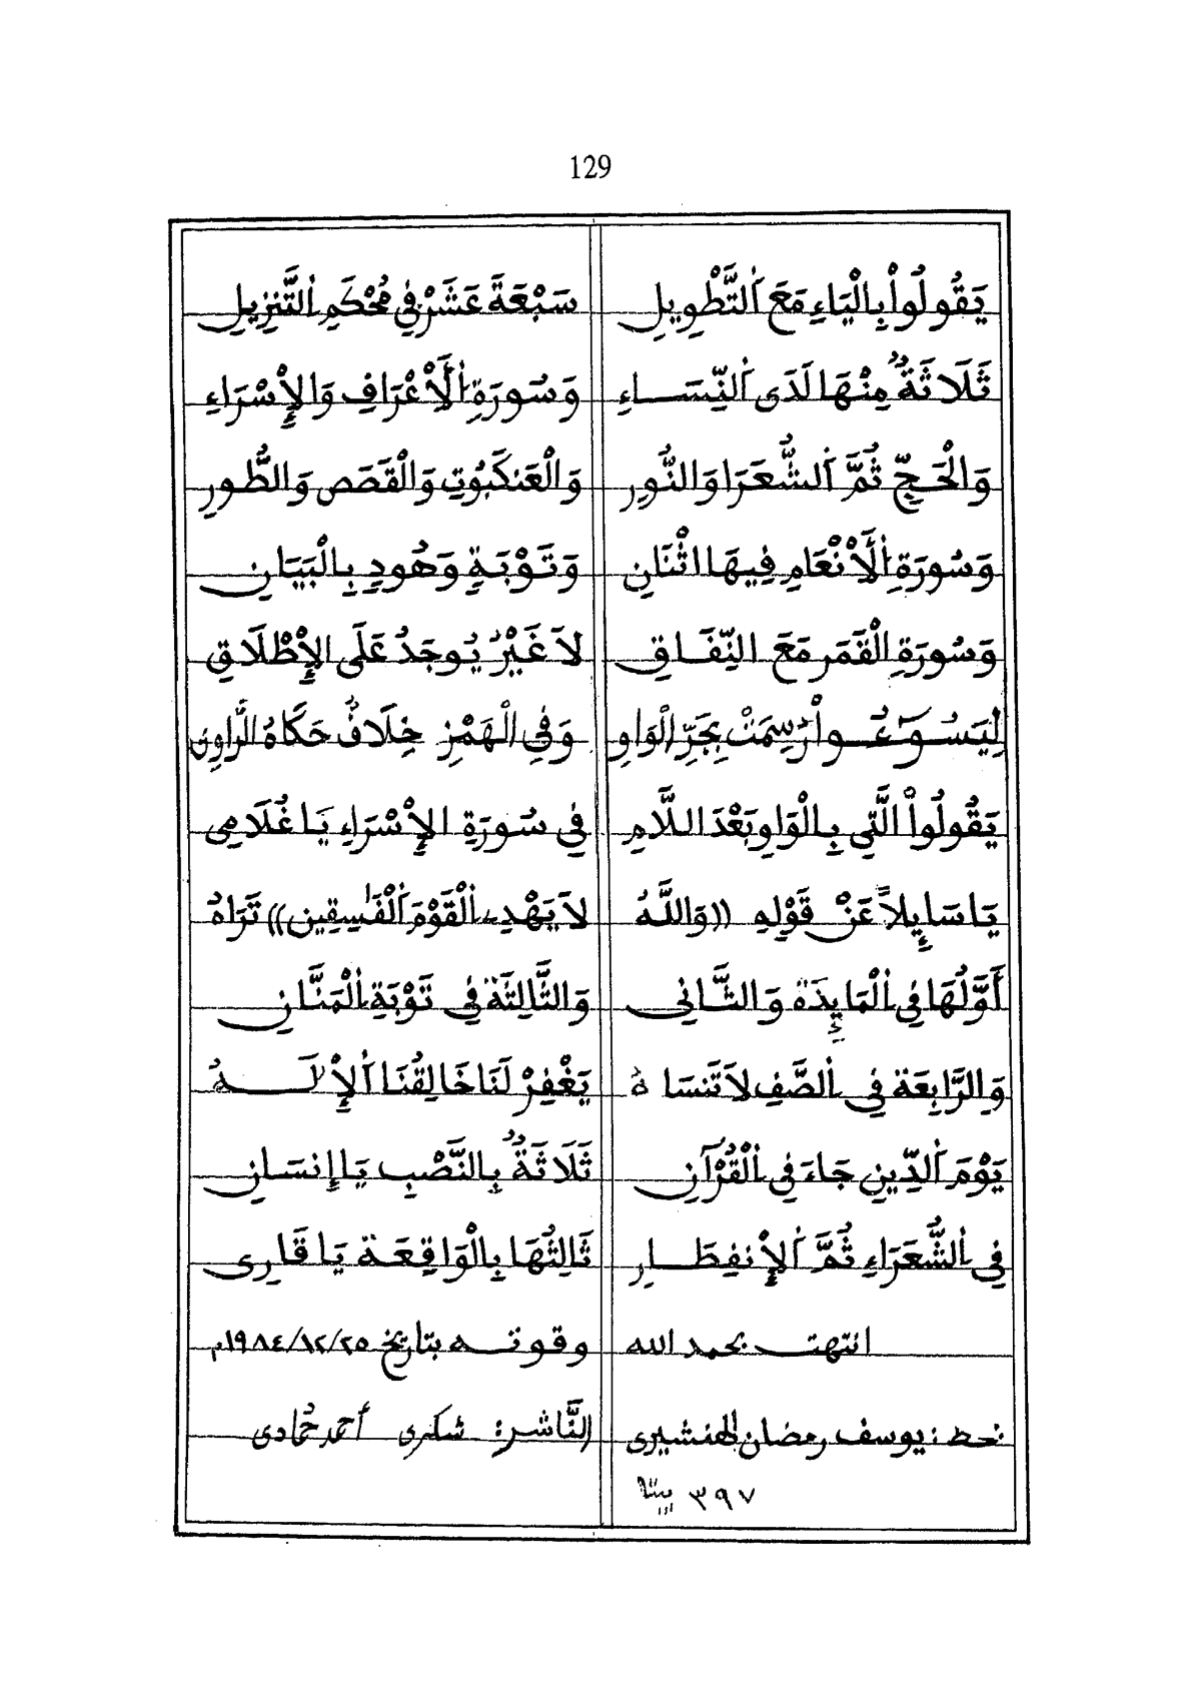 129
يَقُولُواْ بِالْيَاءِ مَعَ اَلتَّطْوِيلِ سَبْعَةَ عَشَرْ فِي مُحْكَمِ اِلتَّنزِيلِ
ثَلَاثَةٌ مِنْهَا لَدَى اَلنِّسَاءِ وَسُورَةِ اِلَأعْرَافِ وَالإِسْرَاءِ
وَالْحَجِّ ثُمَّ اَلشُّعَرَا وَالنُّورِ وَالْعَنكَبُوتِ وَالْقَصَصِ وَالطُّورِ
وَسُورَةِ اِلَأنْعَامِ فِيهَا اثْنَانِ وَتَوْبَةٍ وَهُودٍ بِالْبَيَانِ
وَسُورَةِ الْقَمَرِ مَعَ النِّفَاقِ لاَ غَيْرُ يُوجَدُ عَلَى الإِطْلَاقِ
لِيَسُـَٔـُواْ رُسِمَتْ بِجَرِّ الْوَاوِ وَفِي الْهَمْزِ خِلَافٌ حَكَاهُ الرَّاوِي
يَقُولُواْ الَّتِي بِالْوَاوِ بَعْدَ اللَّامِ فِي سُورَةِ الإِسْرَاءِ يَا غُلَامِي
يَا سَايِٕلاً عَنْ قَوْلِهِ ((وَاللَّهُ لاَ يَهْدِے اِلْقَوْمَ اَلْفَٰسِقِين)) تَرَاهُ
أَوَّلُهَا فِي اِلْمَايِٕدَة وَالثَّانِي وَالثَّالِثَة فِي تَوْبَةِ اِلْمَنَّانِ
وَالرَّابِعَة فِي اِلصَّفِ لاَ تَنسَاهُ يَغْفِرْ لَنَا خَالِقُنَا اَلإِلَهُ
يَوْمَ اَلدِّينِ جَاءَ فِي اِلْقُرْآنِ ثَلَاثَةٌ بِالنَّصْبِ يَا إِنسَانِ
فِي اِلشُّعَرَاءِ ثُمَّ اَلإِنفِطَارِ ثَالِثُهَا بِالْوَاقِعَة يَا قَارِي
انتهت بحمد الله وقوته بتاريخ ١٩٨٤/١٢/٢٥م
بخط: يوسف رمضان الهنشيري النَّاشر: شكري أحمد حُمَّادي
٣٩٧ بيتا